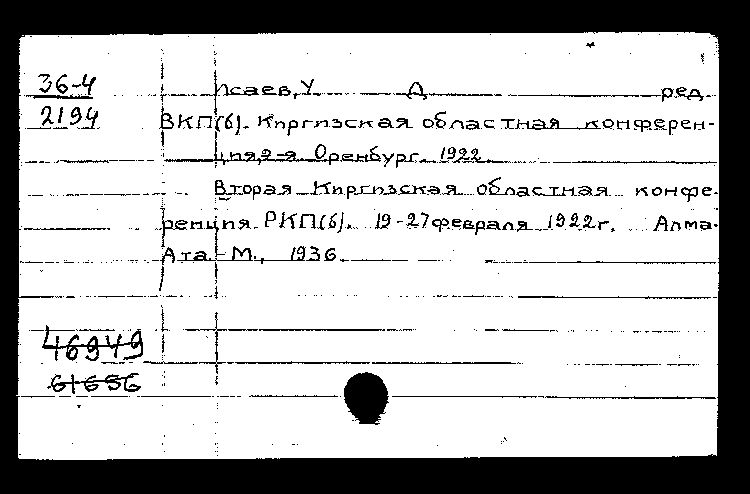 36-4
Исаев, У. Д. ред.
2194
ВКП(б). Киргизская областная конферен-
ция, 2-я. Оренбург. 1922.
Вторая Киргизская областная конфе-
ренция РКП(б). 19-27 февраля 1922 г. Алма-
Ата.-М., 1936.
46949
61656